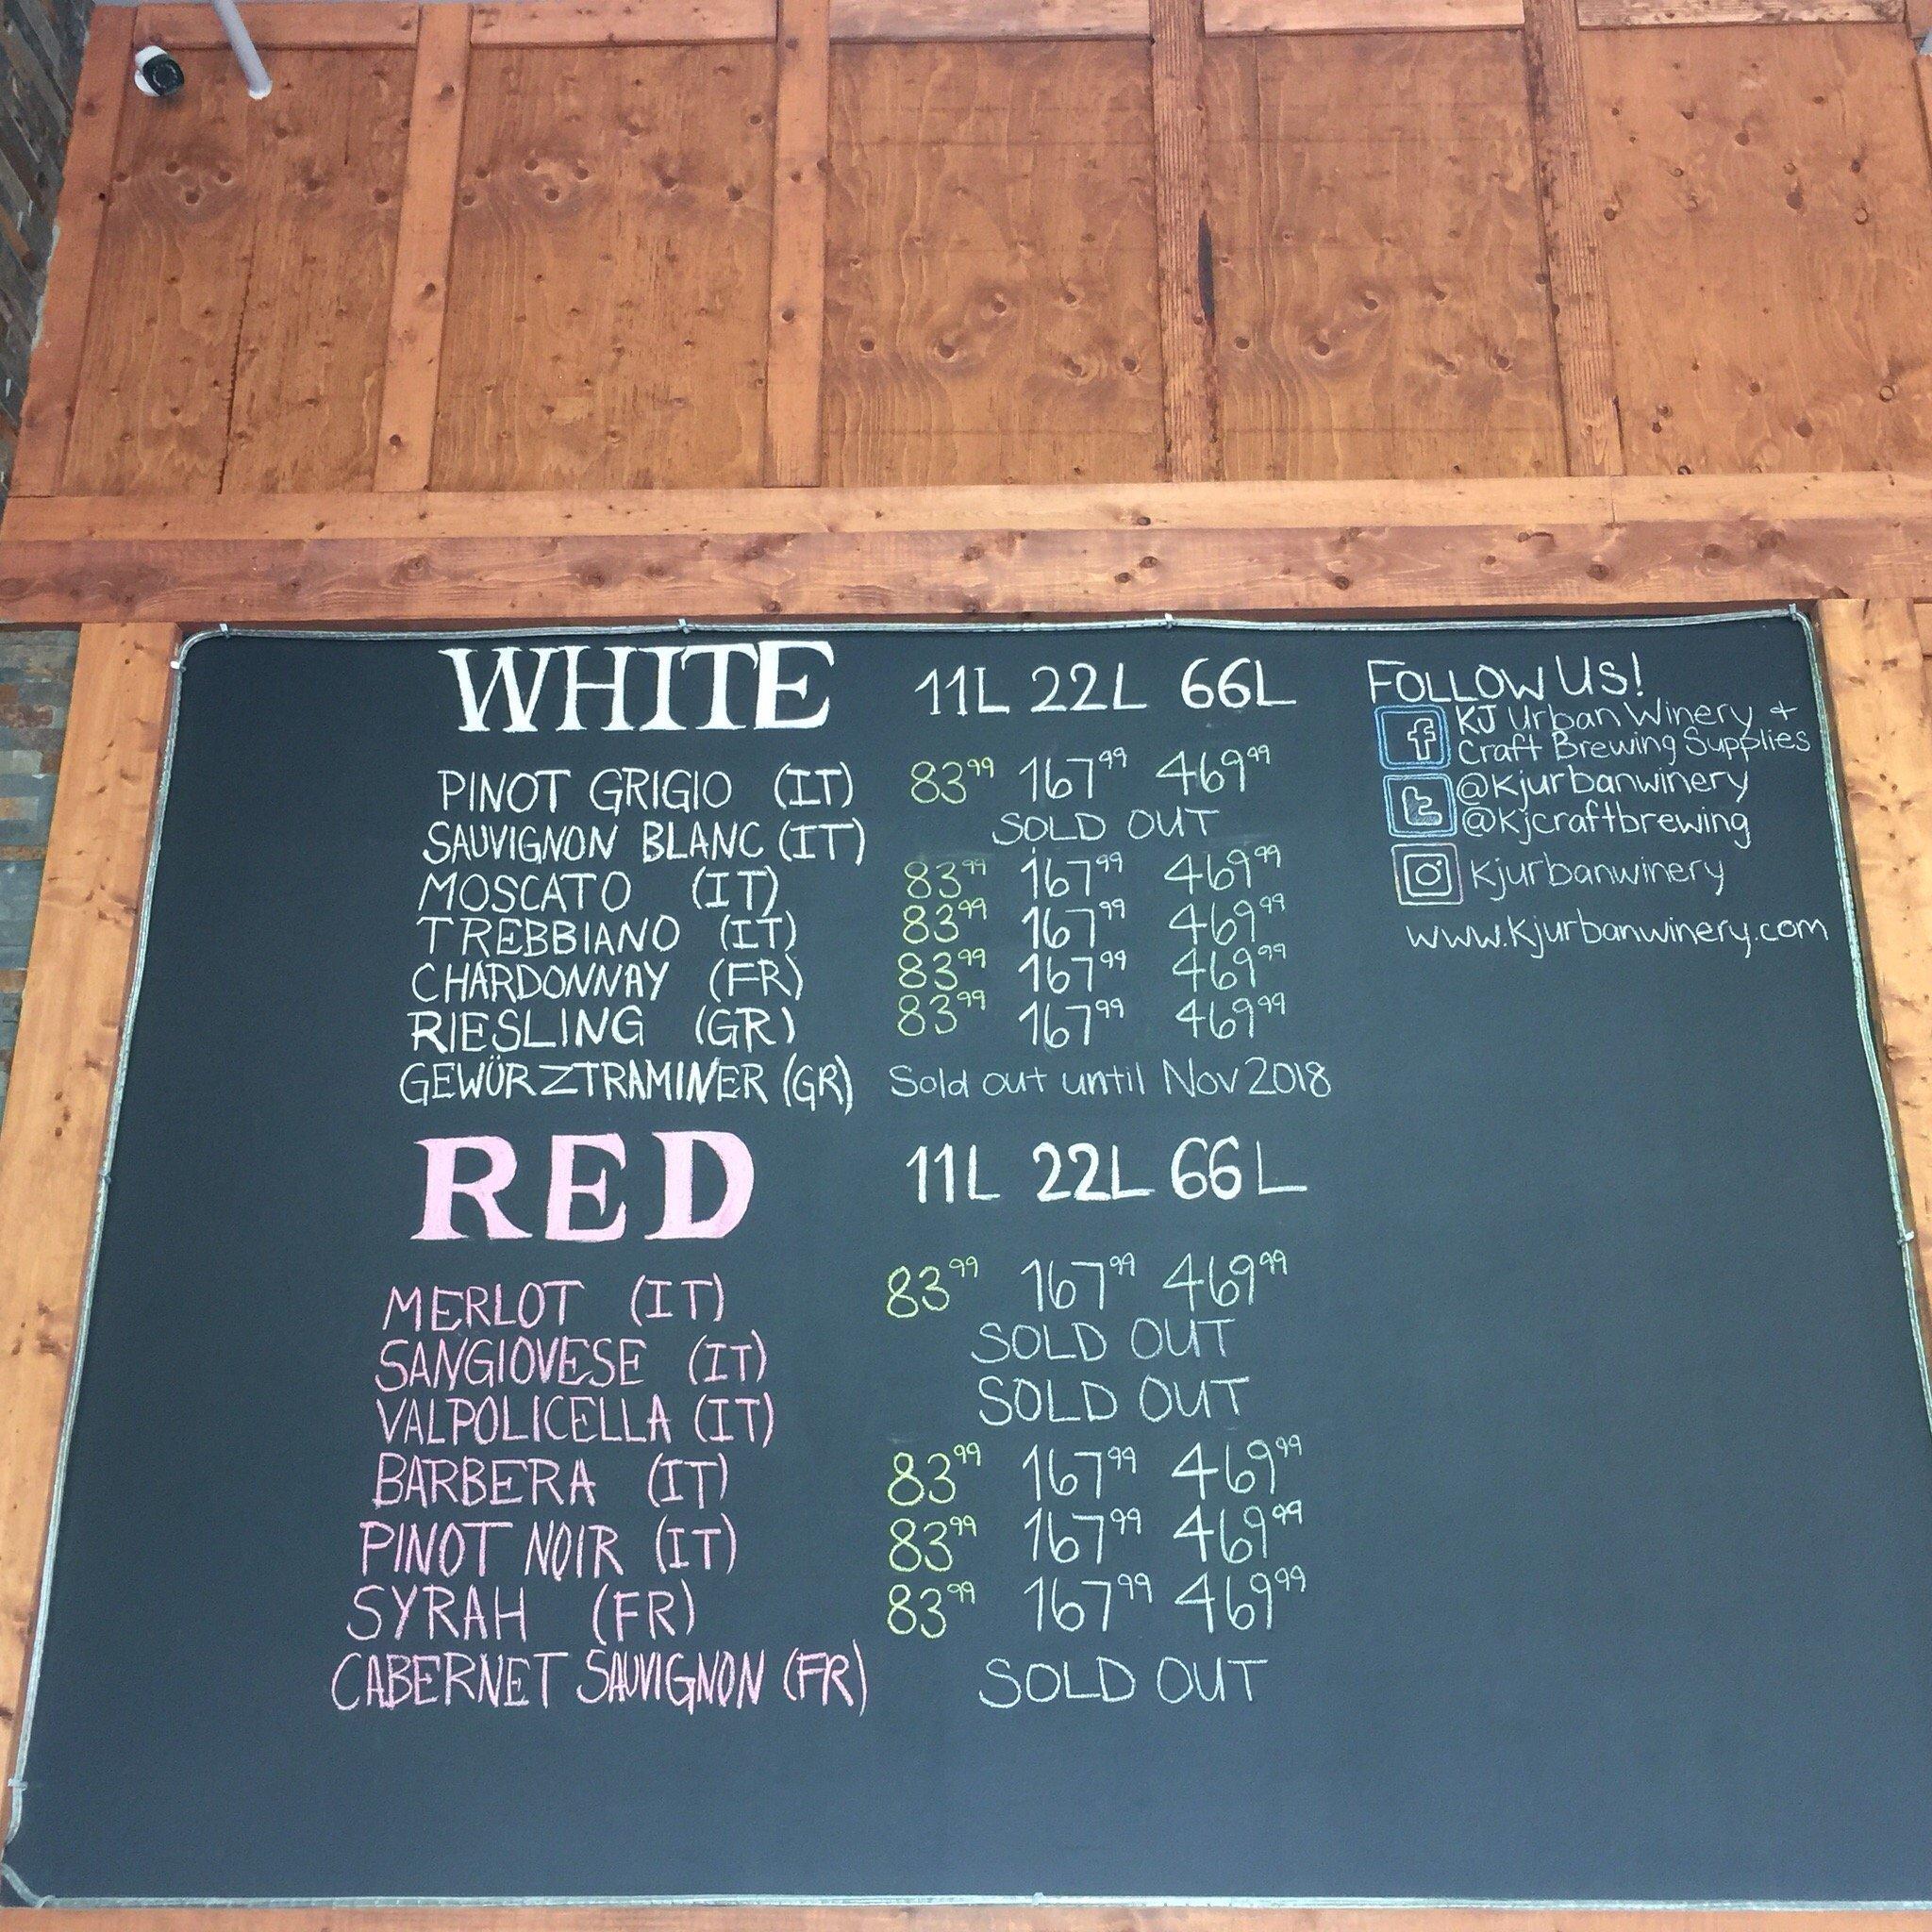 WHITE 11L 22L 66L
PINOT GRIGIO (IT) 83⁹⁹ 167⁹⁹ 469⁹⁹
SAUVIGNON BLANC (IT) SOLD OUT
MOSCATO (IT) 83⁹⁹ 167⁹⁹ 469⁹⁹
TREBBIANO (IT) 83⁹⁹ 167⁹⁹ 469⁹⁹
CHARDONNAY (FR) 83⁹⁹ 167⁹⁹ 469⁹⁹
RIESLING (GR) 83⁹⁹ 167⁹⁹ 469⁹⁹
GEWÜRZTRAMINER (GR) Sold out until Nov 2018
RED 11L 22L 66L
MERLOT (IT) 83⁹⁹ 167⁹⁹ 469⁹⁹
SANGIOVESE (IT) SOLD OUT
VALPOLICELLA (IT) SOLD OUT
BARBERA (IT) 83⁹⁹ 167⁹⁹ 469⁹⁹
PINOT NOIR (IT) 83⁹⁹ 167⁹⁹ 469⁹⁹
SYRAH (FR) 83⁹⁹ 167⁹⁹ 469⁹⁹
CABERNET SAUVIGNON (FR) SOLD OUT
FOLLOW US!
f KJ Urban Winery +
Craft Brewing Supplies
t @kjurbanwinery
@kjcraftbrewing
kjurbanwinery
www.kjurbanwinery.com